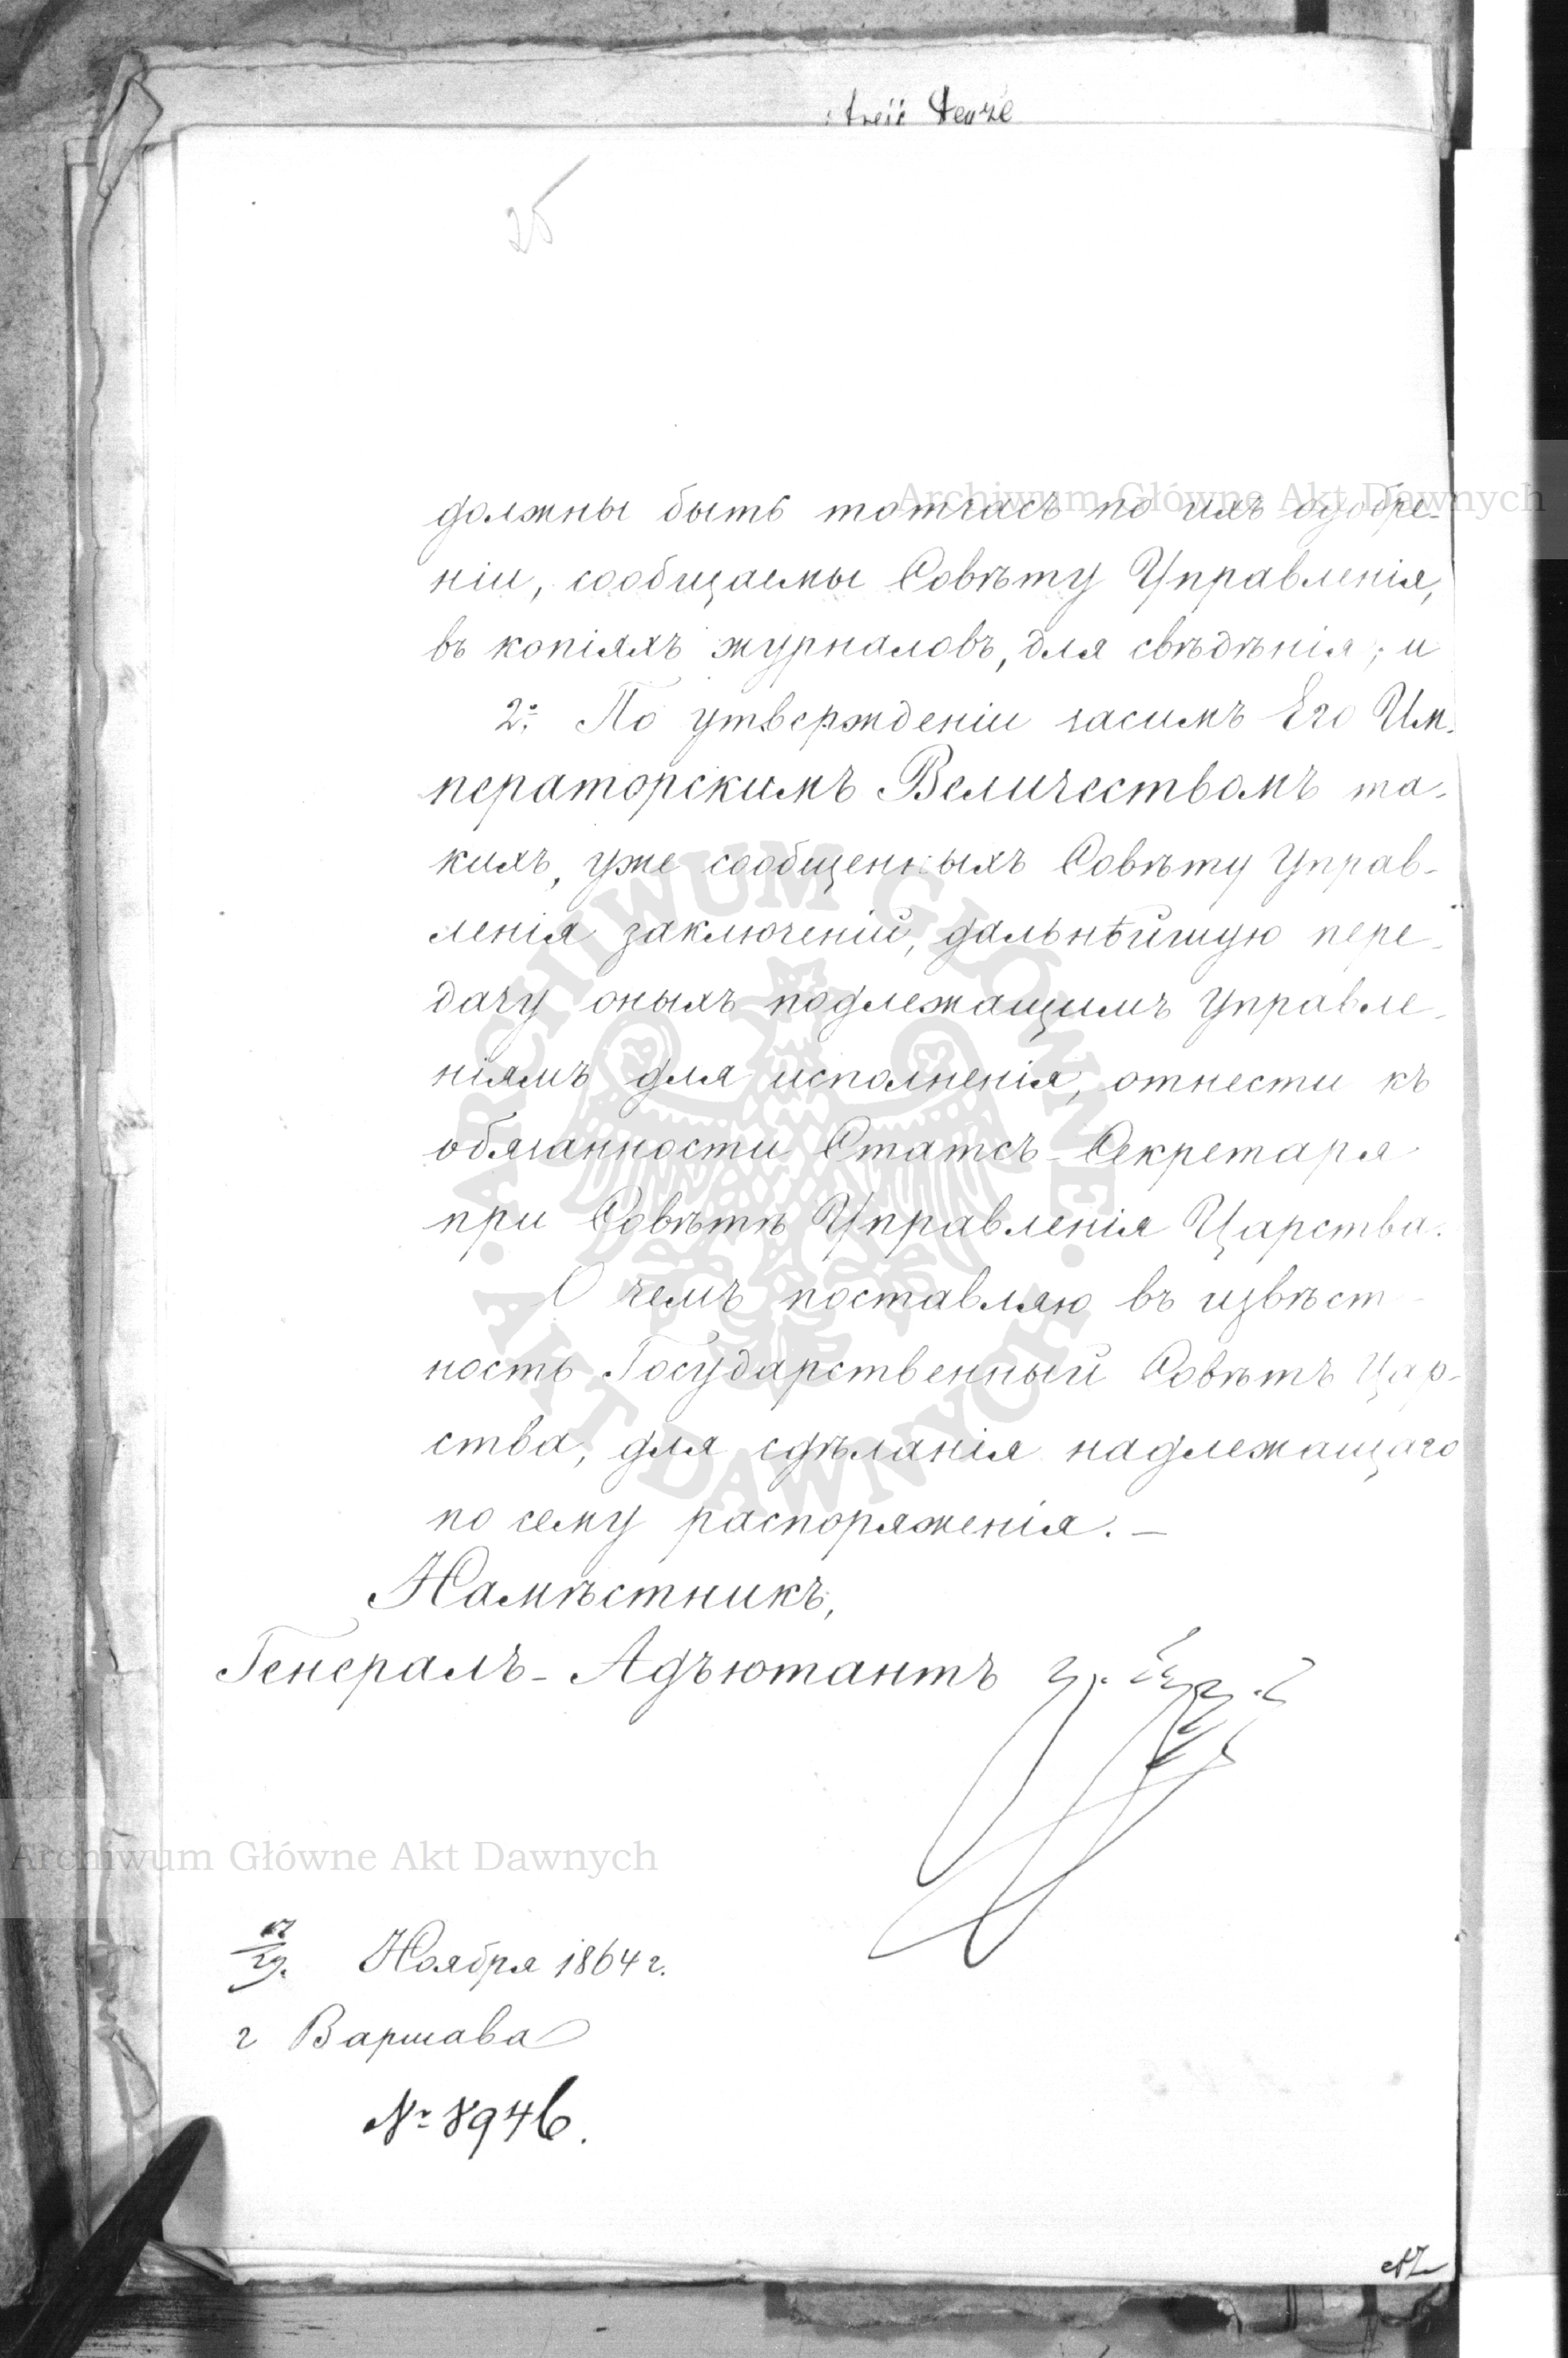 25
должны быть тотчасъ по ихъ одобре-
ніи, сообщаемы Совѣту Управленія,
въ копіяхъ журналовъ, для свѣдѣнія; и
2º. По утвержденіи Его Им-
ператорскимъ Величествомъ та-
кихъ, уже сообщенныхъ Совѣту Управ-
ленія заключеній, дальнѣйшую пере-
дачу оныхъ подлежащимъ Управле-
ніямъ для исполненія, отнести къ
обязанности Статсъ-Секретаря
при Совѣтѣ Управленія Царства.
О чемъ поставляю въ извѣст-
ность Государственный Совѣтъ Цар-
ства, для сдѣланія надлежащаго
по сему распоряженія. —
Намѣстникъ,
Генералъ-Адъютантъ
17/29. Ноября 1864 г.
г Варшава
№ 8946.
Archiwum Główne Akt Dawnych
ARCHIWUM GŁÓWNE
AKT DAWNYCH
Archiwum Główne Akt Dawnych